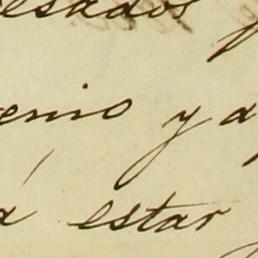 esados
enio y a
á estar